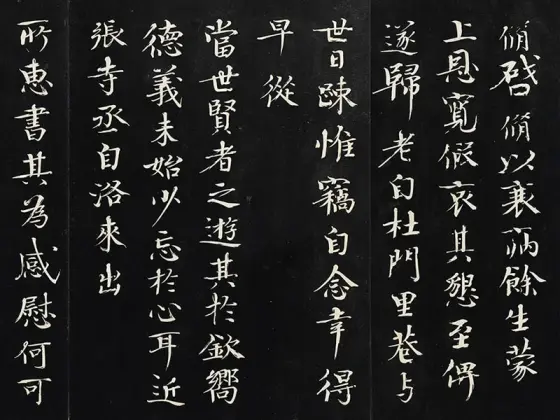 脩啓脩以衰病餘生蒙
上恩寛假哀其懇至俾
遂歸老自杜門里巷与
世日踈惟竊自念幸得
早從
當世賢者之遊其於欽嚮
德義未始少忘於心耳近
張寺丞自洛來出
所惠書其為感慰何可